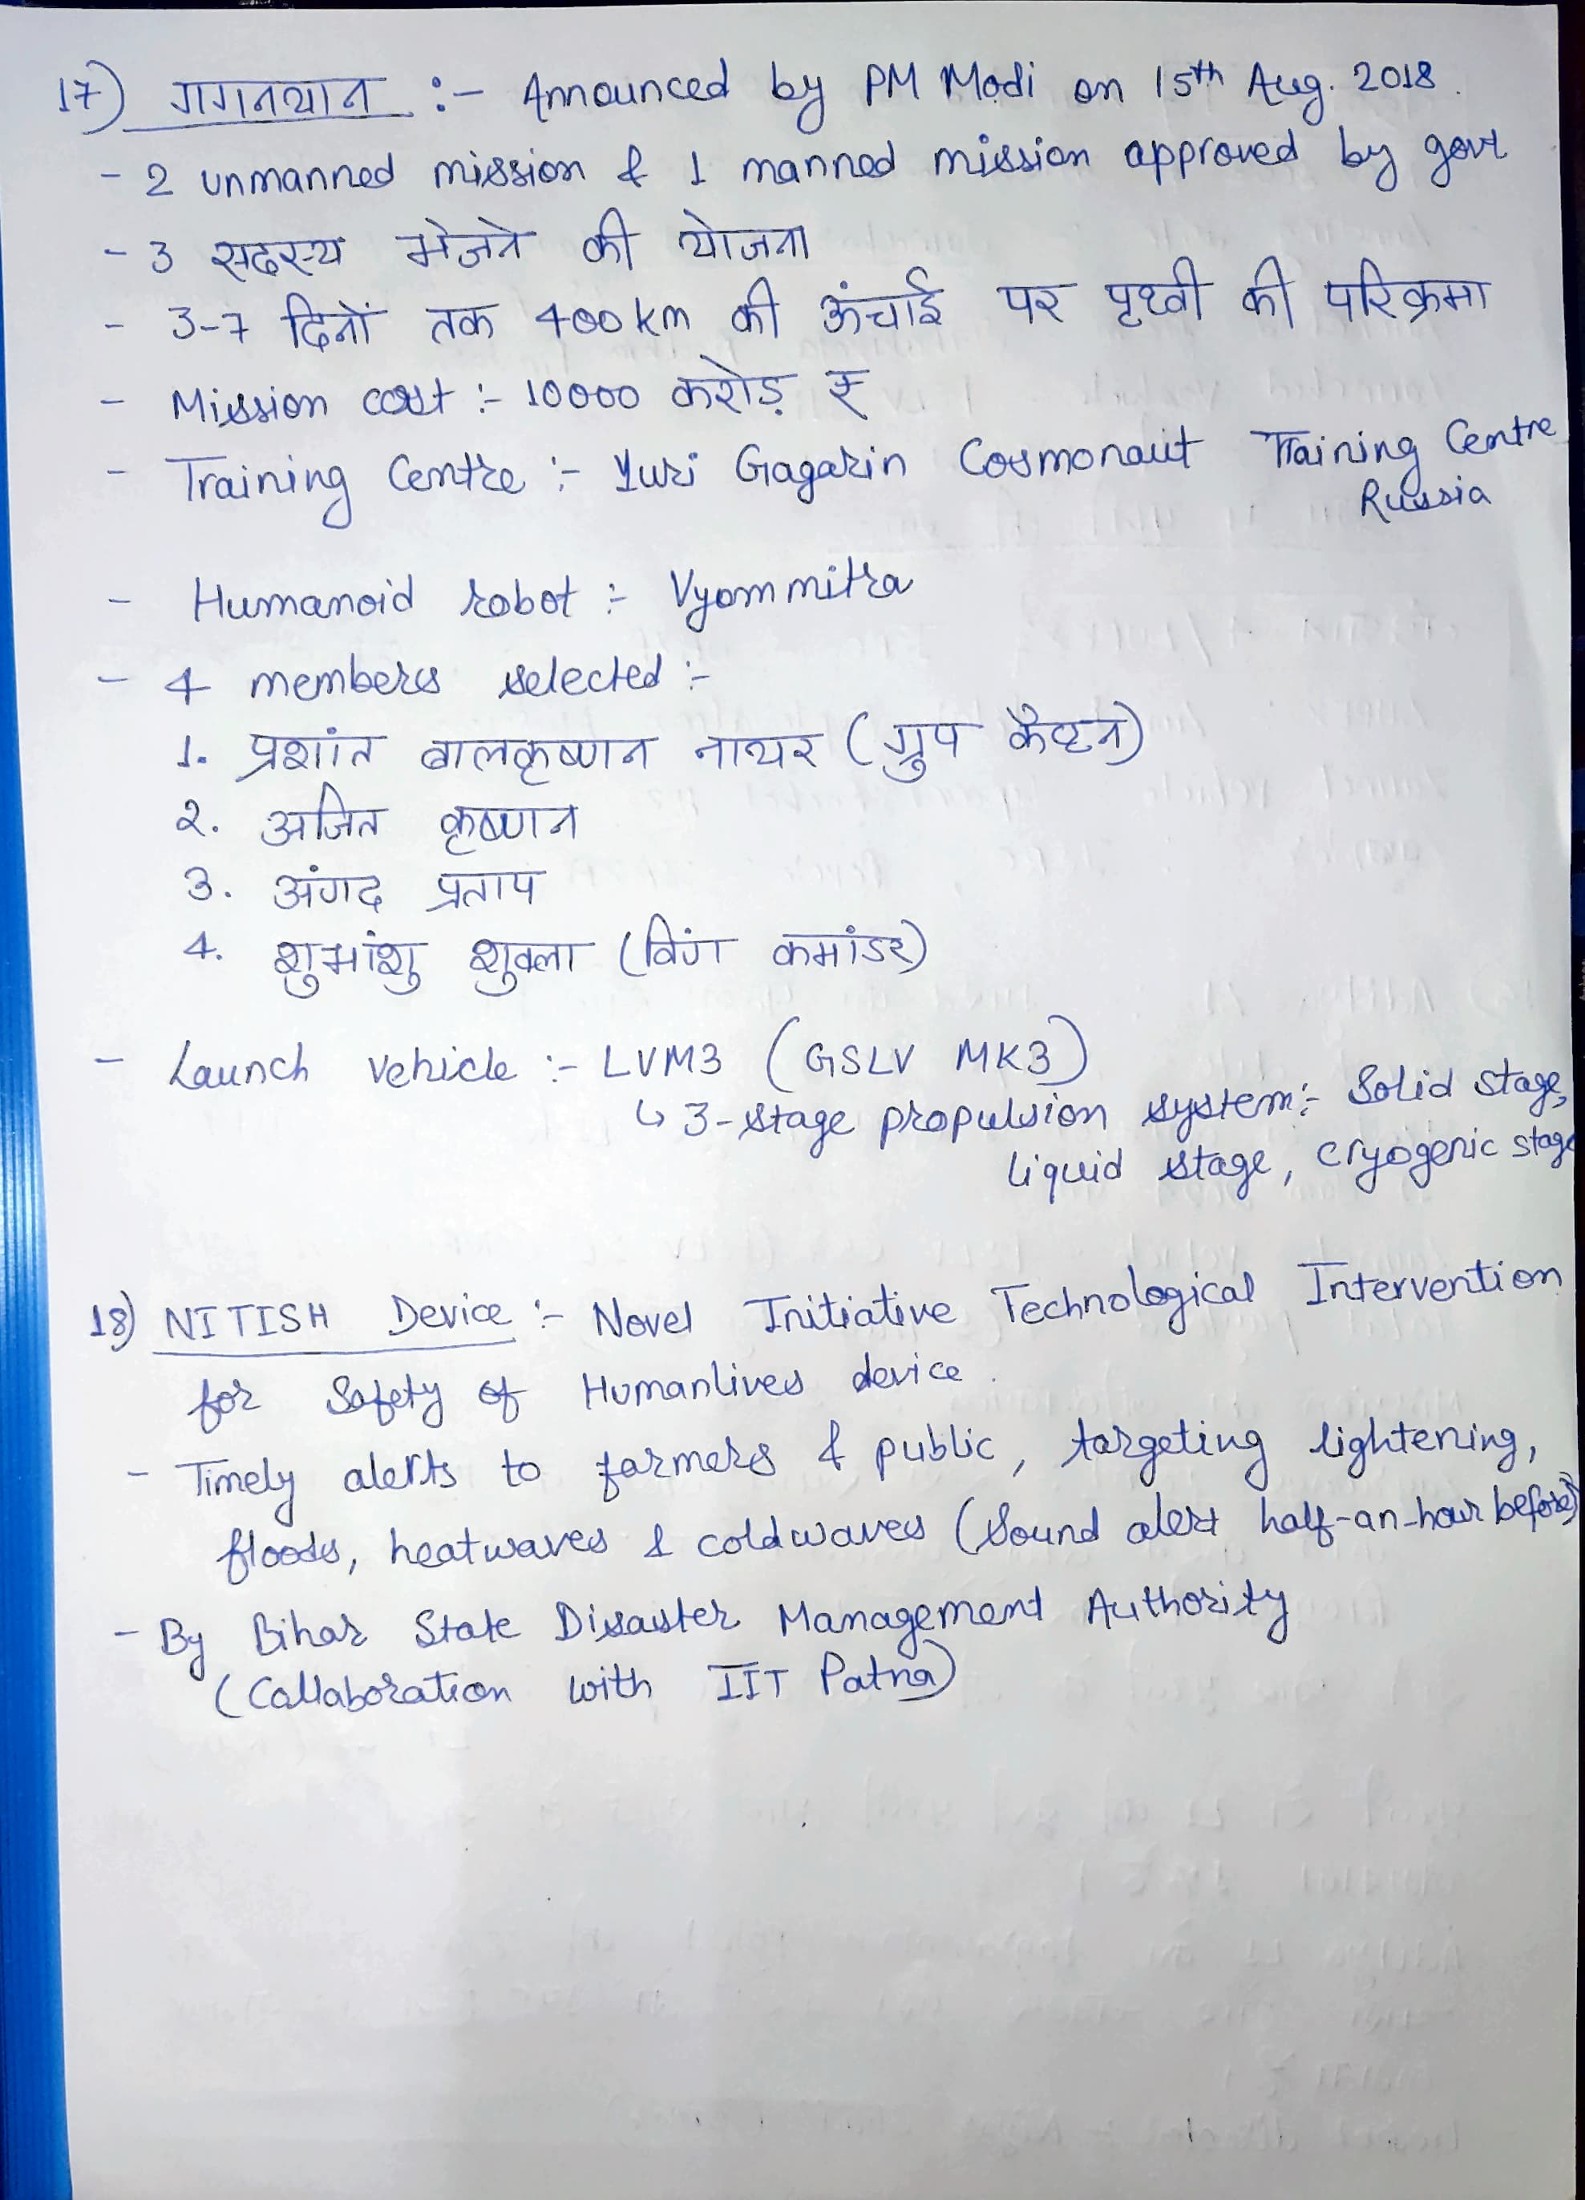 17) गगनयान :- Announced by PM Modi on 15th Aug. 2018.
- 2 unmanned mission & 1 manned mission approved by govt
- 3 सदस्य भेजने की योजना
- 3-7 दिनों तक 400 km की ऊंचाई पर पृथ्वी की परिक्रमा
- Mission cost :- 10000 करोड़ ₹
- Training Centre :- Yuri Gagarin Cosmonaut Training Centre
Russia
- Humanoid robot :- Vyommitra
- 4 members selected :-
1. प्रशांत बालकृष्णन नायर (ग्रुप कैप्टन)
2. अजित कृष्णन
3. अंगद प्रताप
4. शुभांशु शुक्ला (विंग कमांडर)
- Launch vehicle :- LVM3 (GSLV MK3)
↳ 3-stage propulsion system :- Solid stage,
liquid stage, cryogenic stage
18) NITISH Device :- Novel Initiative Technological Intervention
for Safety of Humanlives device.
- Timely alerts to farmers & public, targeting lightening,
floods, heatwaves & coldwaves (Sound alert half-an-hour before)
- By Bihar State Disaster Management Authority
(Collaboration with IIT Patna)